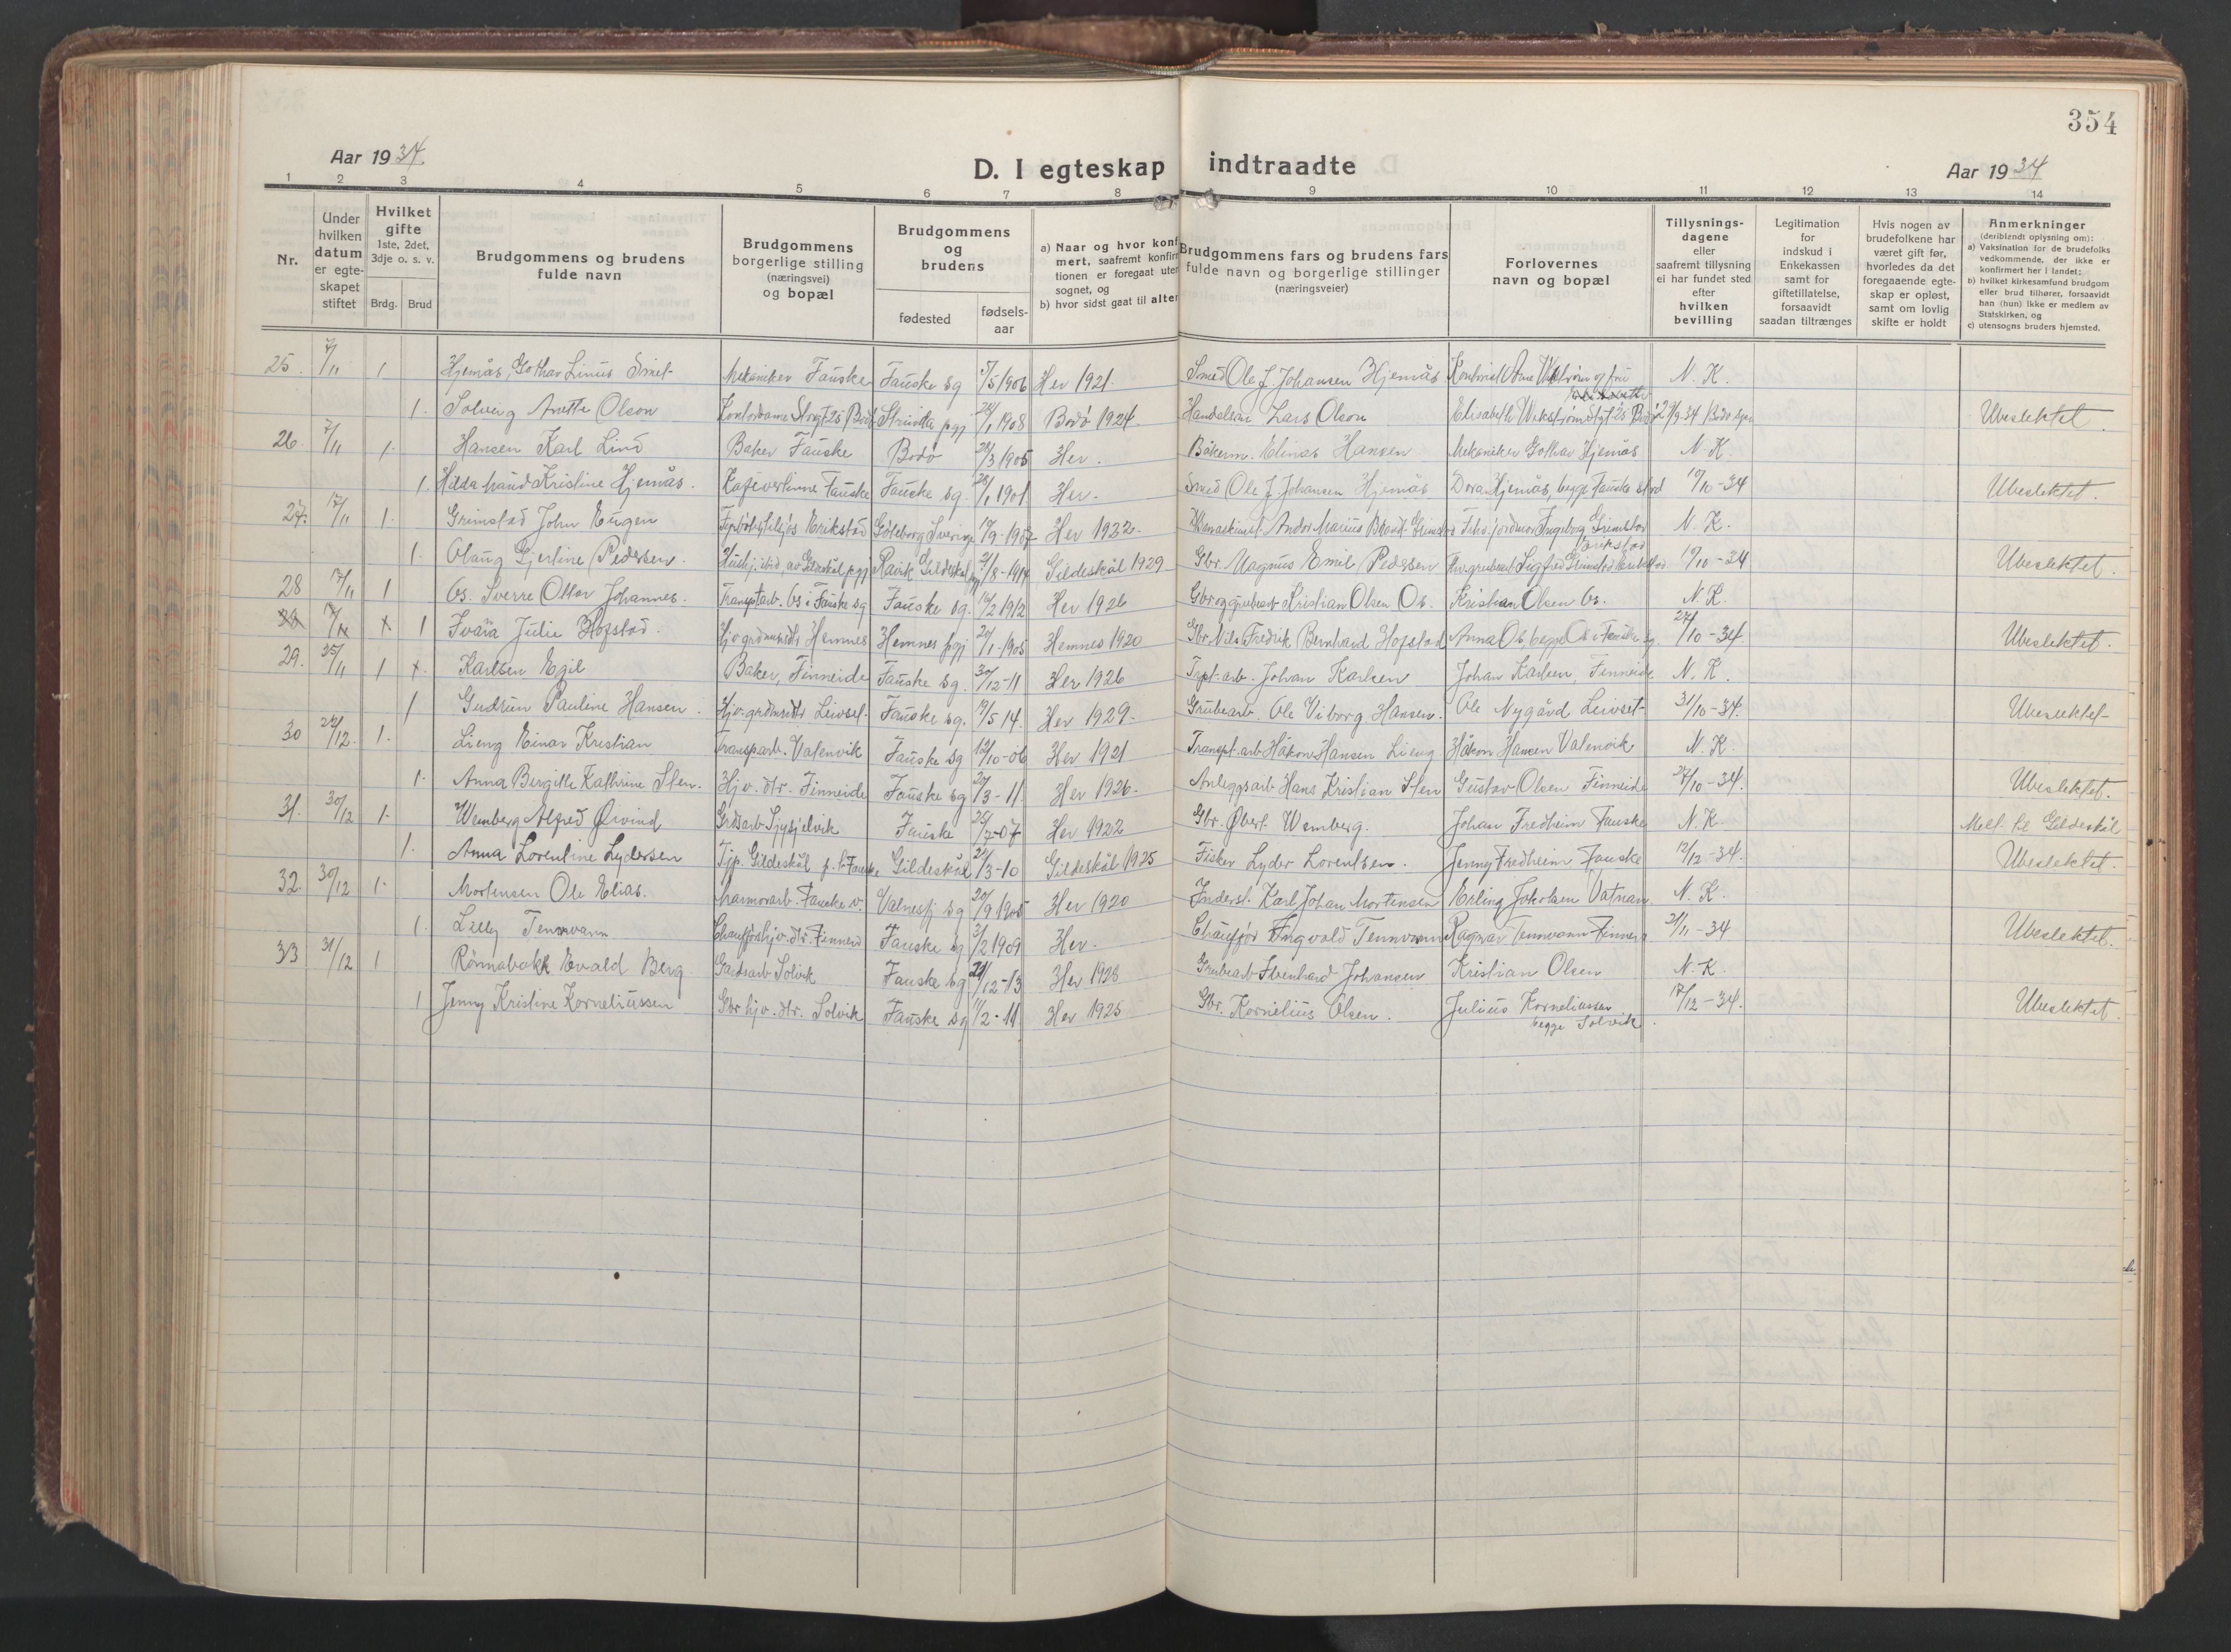 354
Aar 1934.
D. I egteskap indtraadte
Aar 1934
1 2 3 4 5 6 7 8 9 10 11 12 13 14
Nr.
Under hvilken datum er egteskapet stiftet
Hvilket gifte 1ste, 2det, 3dje o. s. v.
Brdg. Brud
Brudgommens og brudens fulde navn
Brudgommens borgerlige stilling (næringsvei) og bopæl
Brudgommens og brudens
fødested
fødsels-aar
a) Naar og hvor konf
mert, saafremt konfir
tionen er foregaat uten
sognet, og
b) hvor sidst gaat til alter
Brudgommens fars og brudens fars fulde navn og borgerlige stillinger (næringsveier)
Forlovernes navn og bopæl
Tillysnings-dagene eller saafremt tillysning ei har fundet sted efter hvilken bevilling
Legitimation for indskud i Enkekassen samt for giftetillatelse, forsaavidt saadan tiltrænges
Hvis nogen av brudefolkene har været gift før, hvorledes da det foregaaende egteskap er opløst, samt om lovlig skifte er holdt
Anmerkninger
(deriblandt oplysning om):
a) Vaksination for de brudefolks vedkommende, der ikke er konfirmert her i landet;
b) hvilket kirkesamfund brudgom eller brud tilhører, forsaavidt han (hun) ikke er medlem av Statskirken, og
c) utensogns bruders hjemsted.
25. 7/11 1 Hjemås, Gothar Linus Emel Mekaniker Fauske Fauske sg 5/5 1906 Her 1921. Smed Ole J. Johansen Hjemås N. K.
1. Solveig Anette Olson 1908 Bodø 1924. Handelsm Lars Olson Ubeslektet.
26 7/11 1. Hansen Karl Lind Baker Fauske Bodø 28/3 1905 Her. Bakerm. Elinas Hansen Mekaniker Gothar Hjemås N. K.
1. Hilda Maud Kristine Hjemås. Fauske Fauske sg. 1901 Her. Smed Ole J. Johansen Hjemås 19/10-34 Ubeslektet.
27. 17/11 1. Grimstad John Eugen Göteborg Sverige 19/9-1907 Her 1922. N. K.
1. Olaug Gjertine Pedersen. 21/8-1914 Gildeskål 1929 Gbr. Magnus Emil Pedersen 19/10-34 Ubeslektet.
28 17/11 1 Os. Sverre Ottar Johannes. Transptarb. Os i Fauske sg Fauske sg. 16/2 1912 Her 1926 Kristian Olsen Os. Kristian Olsen Os. N. K.
1 Julie Hofstad. Hemnes Hemnes pgj 20/1-1905 Hemnes 1920 Gbr. Nils Fredrik Bernhard Hofstad 27/10-34 Ubeslektet.
29. 25/11 1 Karlsen Egil Baker, Finneide Fauske sg. 30/12-11 Her 1926 Trpt. arb. Johan Karlsen Johan Karlsen, Finneide N. K.
1 Gudrun Pauline Hansen. Leivset. Fauske sg. 19/5 14. Her 1929. Grubearb. Ole Viborg Hansen. Ole Nygård Leivset 31/10-34. Ubeslektet
30 22/12. 1. Lieng Einar Kristian Transp.arb. Valenvik Fauske sg 12/10-06 Her 1921 Transpt. arb Håkon Hansen Lieng Håkon Hansen Valenvik N. K.
1. Anna Bergitte Kathrine Sten. Hjv. dtr. Finneide Fauske sg 20/3-11. Her 1926. Anleggsarb Hans Kristian Sten Gustav Olsen Finneide 27/10-34. Ubeslektet.
31. 30/12 1. Wemberg Alfred Øivind Fauske 25/7-07 Her 1922 Gbr. Wemberg. Johan Fredheim Fauske N. K. Meld. til Gildeskål
1. Anna Lorentine Lydersen Gildeskål Gildeskål 21/3-10 Gildeskål 1925 Fisker Lyder Lorentsen. Jenny Fredheim Fauske 12/12-34. Ubeslektet.
32. 30/12 1. Mortensen Ole Elias. Marmorarb. Fauske v. Valnesfj sg 20/9 1905 Her 1920 Karl Johan Mortensen Erling Jakobsen Vatnan. N. K.
1. Lilly Tennvann Fauske sg 3/2 1909 Her. Chauffør Ingvald Tennvann Ragnar Tennvann 21/11-34 Ubeslektet.
33 31/12 1 Rönnabakk Evald Berg Solvik Fauske sg 29/12-13 Her 1928 Johansen Kristian Olsen N. K.
1 Jenny Kristine Korneliussen Gbr hjv. dtr. Solvik Fauske sg 11/2-11 Her 1925 Gbr. Kornelius Olsen. Julius Korneliussen 17/12-34. Ubeslektet.
begge Solvik.